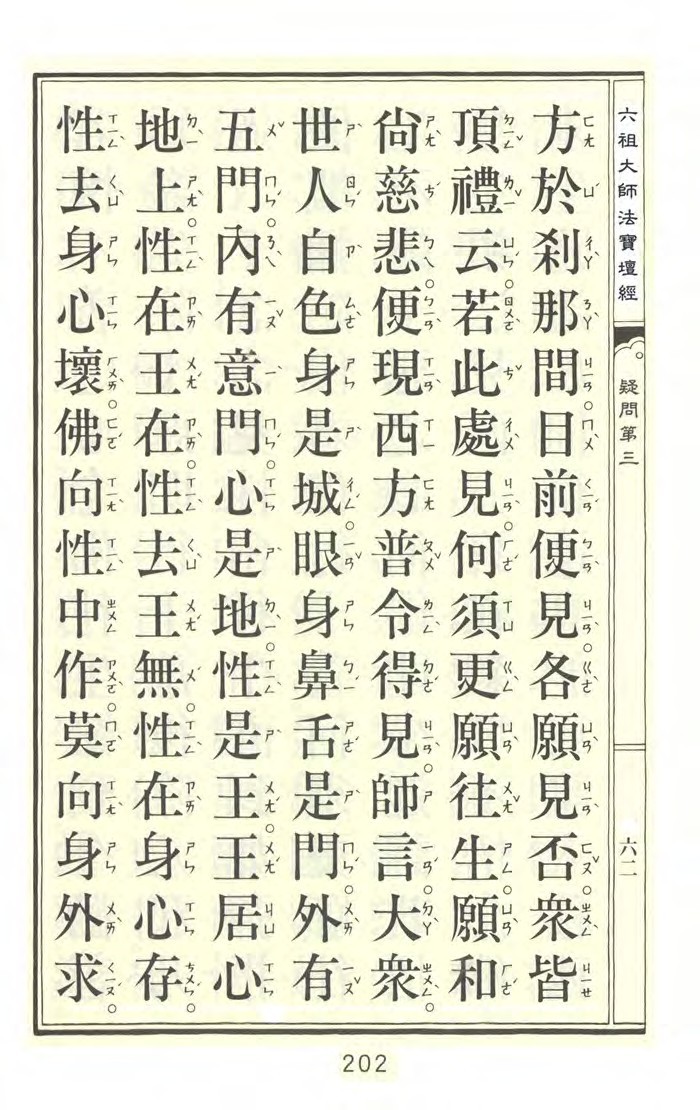 六祖大師法寶壇經
疑問第三
六二
方於剎那間。目前便見。各願見否。眾皆
頂禮云。若此處見。何須更願往生。願和
尚慈悲。便現西方普令得見。師言大眾。
世人自色身是城。眼身鼻舌是門。外有
五門。內有意門。心是地性是王。王居心
地上。性在王在。性去王無。性在身心存。
性去身心壞。佛向性中作。莫向身外求。
202